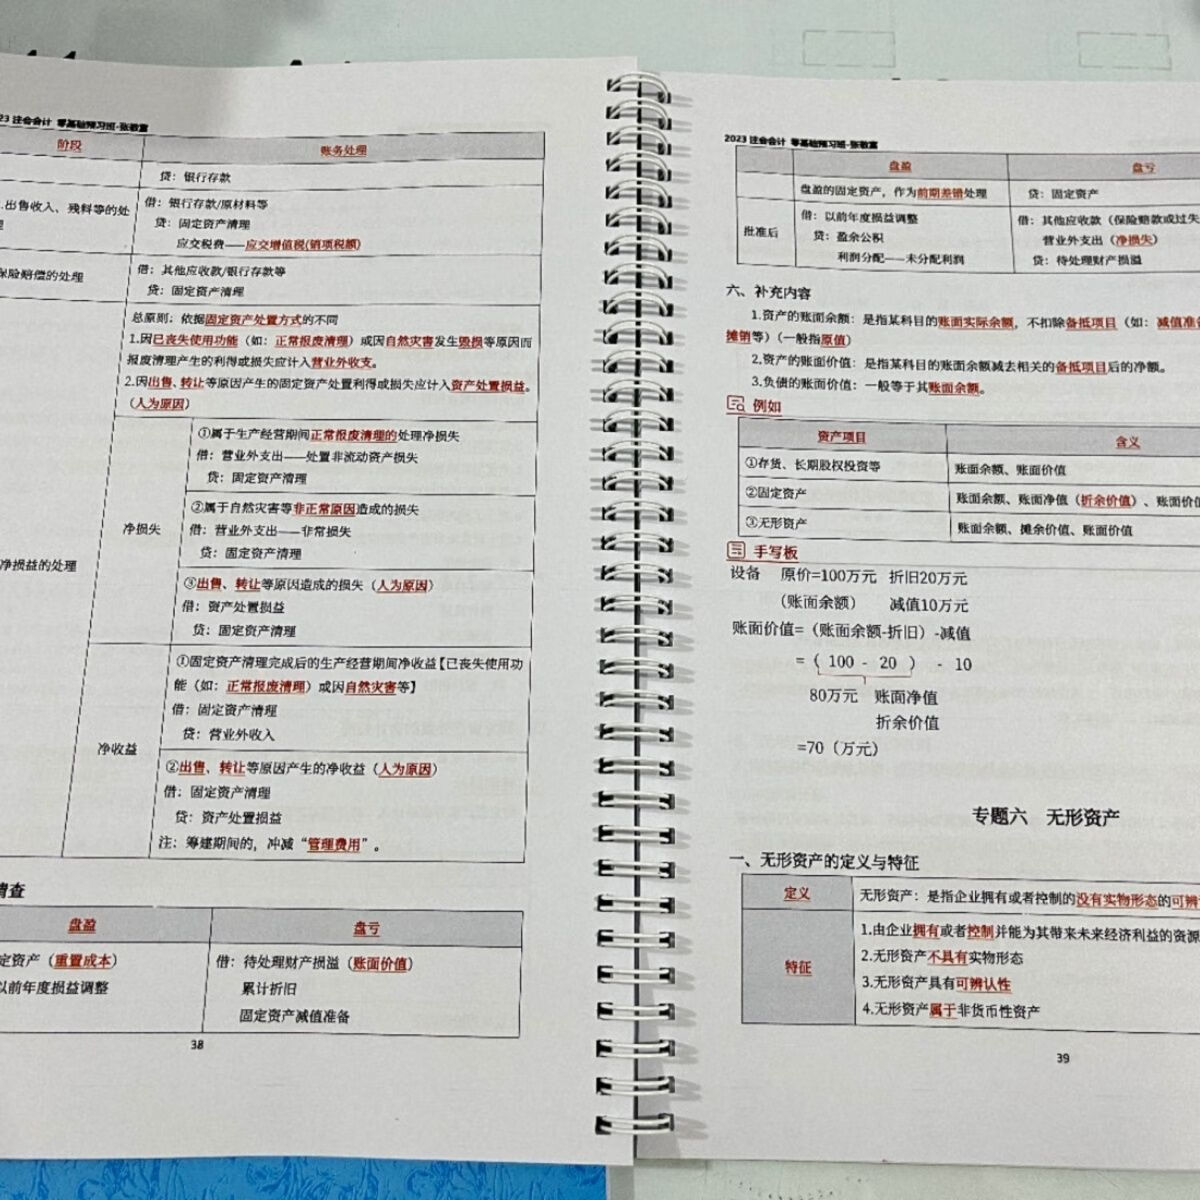 23 注会会计 零基础预习班-张敬富
阶段
账务处理
贷：银行存款
.出售收入、残料等的处
理
借：银行存款/原材料等
贷：固定资产清理
应交税费——应交增值税(销项税额)
保险赔偿的处理
借：其他应收款/银行存款等
贷：固定资产清理
净损益的处理
总原则：依据固定资产处置方式的不同
1.因已丧失使用功能（如：正常报废清理）或因自然灾害发生毁损等原因而
报废清理产生的利得或损失应计入营业外收支。
2.因出售、转让等原因产生的固定资产处置利得或损失应计入资产处置损益。
（人为原因）
净损失
①属于生产经营期间正常报废清理的处理净损失
借：营业外支出——处置非流动资产损失
贷：固定资产清理
②属于自然灾害等非正常原因造成的损失
借：营业外支出——非常损失
贷：固定资产清理
③出售、转让等原因造成的损失（人为原因）
借：资产处置损益
贷：固定资产清理
净收益
①固定资产清理完成后的生产经营期间净收益【已丧失使用功
能（如：正常报废清理）或因自然灾害等】
借：固定资产清理
贷：营业外收入
②出售、转让等原因产生的净收益（人为原因）
借：固定资产清理
贷：资产处置损益
注：筹建期间的，冲减“管理费用”。
清查
盘盈
盘亏
定资产（重置成本）
以前年度损益调整
借：待处理财产损溢（账面价值）
累计折旧
固定资产减值准备
38
2023 注会会计 零基础预习班-张敬富
盘盈
盘亏
盘盈的固定资产，作为前期差错处理
贷：固定资产
批准后
借：以前年度损益调整
贷：盈余公积
利润分配——未分配利润
借：其他应收款（保险赔款或过失
营业外支出（净损失）
贷：待处理财产损溢
六、补充内容
1.资产的账面余额：是指某科目的账面实际余额，不扣除备抵项目（如：减值准备
摊销等）（一般指原值）
2.资产的账面价值：是指某科目的账面余额减去相关的备抵项目后的净额。
3.负债的账面价值：一般等于其账面余额。
例如
资产项目
含义
①存货、长期股权投资等
账面余额、账面价值
②固定资产
账面余额、账面净值（折余价值）、账面价值
③无形资产
账面余额、摊余价值、账面价值
手写板
设备 原价=100万元 折旧20万元
（账面余额） 减值10万元
账面价值=（账面余额-折旧）-减值
=（ 100 - 20 ） - 10
80万元 账面净值
折余价值
=70（万元）
专题六 无形资产
一、无形资产的定义与特征
定义
无形资产：是指企业拥有或者控制的没有实物形态的可辨
特征
1.由企业拥有或者控制并能为其带来未来经济利益的资源
2.无形资产不具有实物形态
3.无形资产具有可辨认性
4.无形资产属于非货币性资产
39